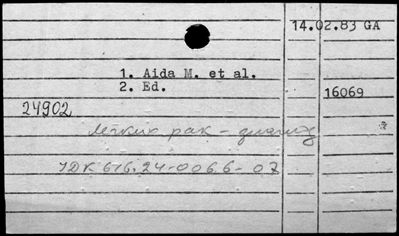 14.02.83 GA
1. Aida M. et al.
2. Ed.
16069
24902
легких рак - диагноз
УДК 616.24-006.6-07